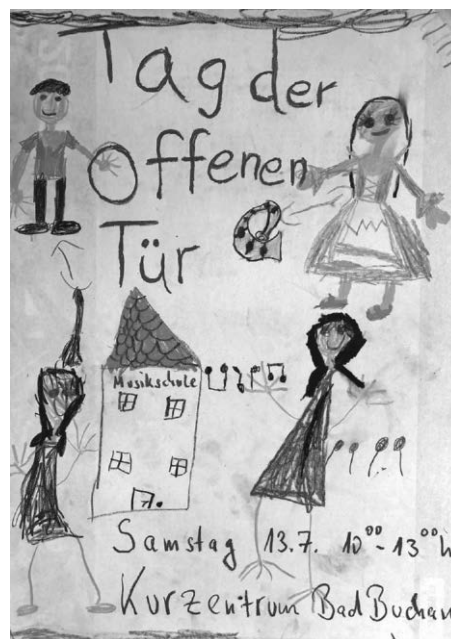 Tag der
Offenen
Tür
Musikschule
Samstag 13.7. 10⁰⁰-13⁰⁰h
Kurzentrum Bad Buchau